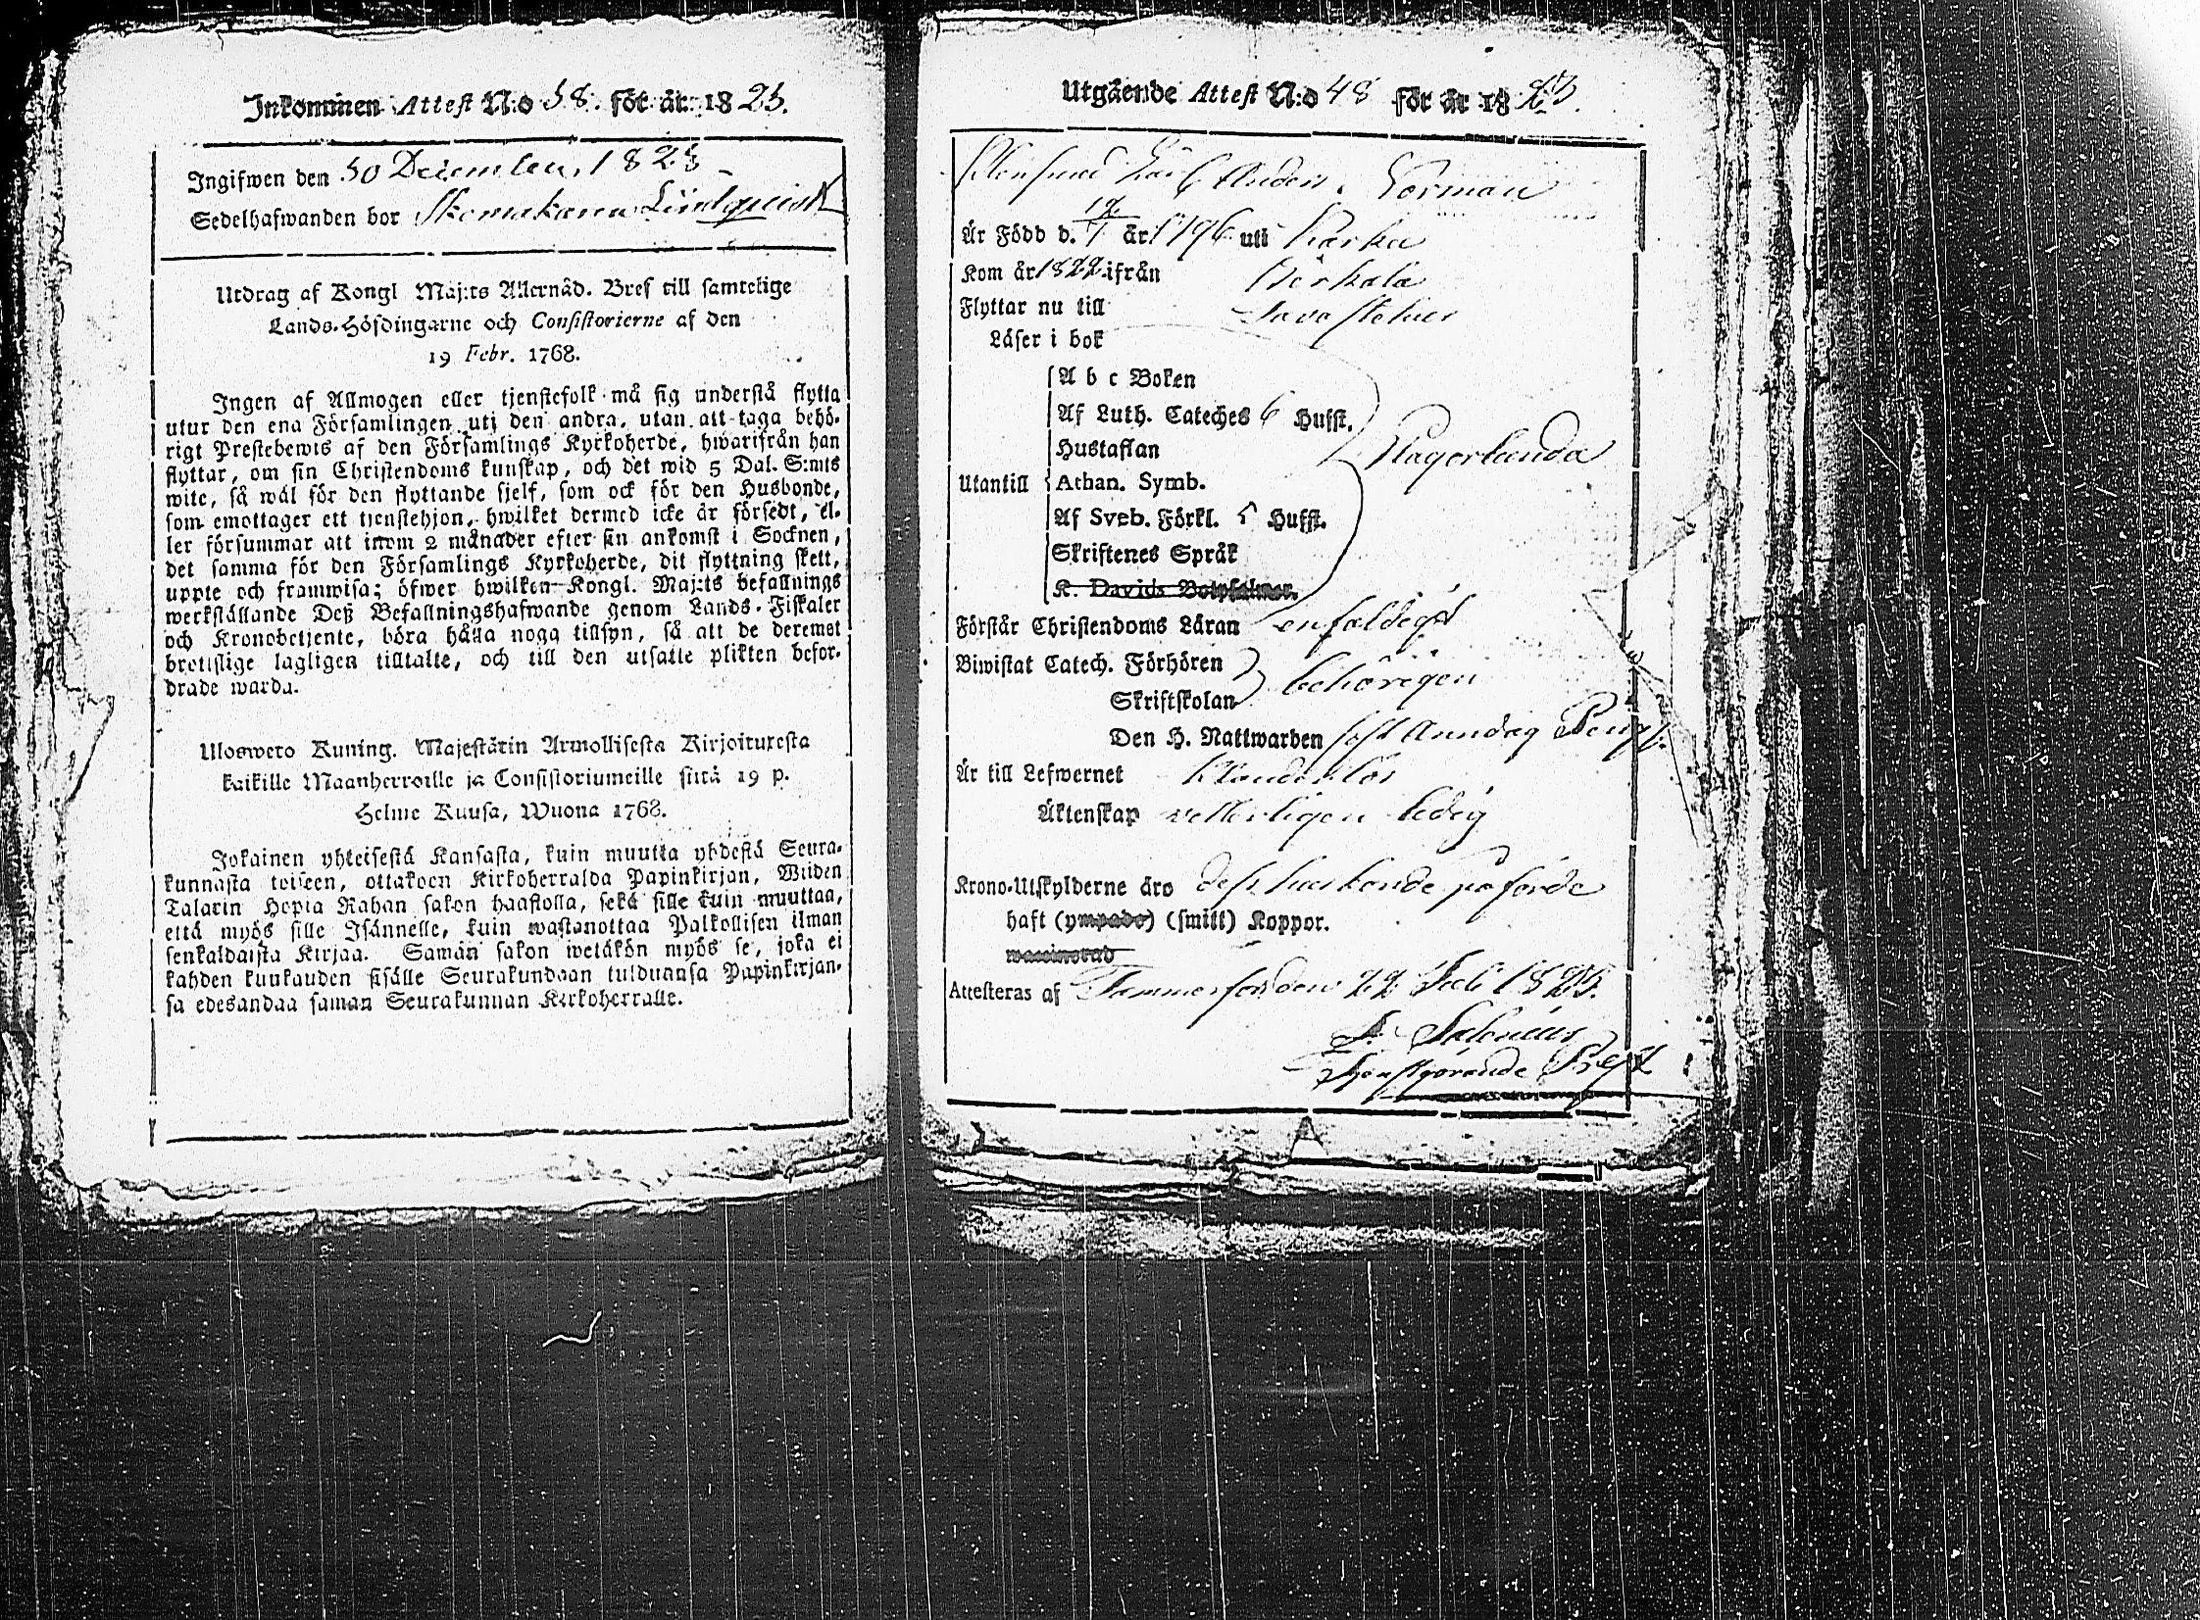 Inkommen Attest N:o 58. för år 1823.
Ingifwen den 30 December 1823
Sedelhafwanden bor Skomakaren Lindquist
Utdrag af Kongl Maj:ts Allernåd. Bref till samtelige
Lands-Höfdingarne och Consistorierne af den
19 Febr. 1768.
Ingen af Allmogen eller tjenstefolk må sig understå flytta
utur den ena Församlingen uti den andra, utan att taga behö-
rigt Prestebewis af den Församlings Kyrkoherde, hwarifrån han
flyttar, om sin Christendoms kunskap, och det wid 5 Dal. S:mts
wite, så wäl för den flyttande sjelf, som ock för den Husbonde,
som emottager ett tjenstehjon, hwilket dermed icke är försedt, el-
ler försummar att inom 2 månader efter sin ankomst i Socknen,
det samma för den Församlings Kyrkoherde, dit flyttning skett,
uppte och framwisa; öfwer hwilken Kongl. Maj:ts befallnings
werkställande Deß Befallningshafwande genom Lands-Fiskaler
och Kronobetjente, böra hålla noga tillsyn, så att de deremot
brottslige lagligen tilltalte, och till den utsatte plikten befor-
drade warda.
Uloswero Kuning. Majestätin Armollisesta Kirjoituxesta
kaikille Maanherroille ja Consistoriumeille siitä 19 p.
Helme Kuusa, Wuona 1768.
Jokainen yhteisestä Kansasta, kuin muutta yhdestä Seura-
kunnasta toiseen, ottakoon Kirkoherralda Papinkirjan, Wiiden
Talarin Hopia Rahan sakon haastolla, sekä sille kuin muuttaa,
että myös sille Isännelle, kuin wastanottaa Palkollisen ilman
senkaldaista Kirjaa. Samän sakon wetäkön myös se, joka ei
kahden kuukauden sisälle Seurakundaan tulduansa Papinkirjan-
sa edesandaa saman Seurakunnan Kirkoherralle.
Utgående Attest N:o 48 för år 1823.
Carl Anders. Norman
Är Född d. år 1796 uti Karku
Kom år 1822 ifrån Birkala
Flyttar nu till Tavastehus
Läser i bok
A b c Boken
Af Luth. Cateches 6 Hufst.
Hustaflan
Någorlunda
Utantill Athan. Symb.
Af Sveb. Förkl. 5 Hufst.
Skriftenes Språk
K. Davids Botpsalmer.
Förstår Christendoms Läran enfaldigt
Biwistat Catech. Förhören
behörigen
Skriftskolan
Den H. Nattwarden sist Anndag Pingst.
Är till Lefwernet klanderlös
Äktenskap vetterligen ledig
Krono-Utskylderne äro dess husbonde påförde
haft (ympade) (smitt) Koppor.
waccinerad
Attesteras af Tammerfors den 22 1823.
Tjenstgörande Prest